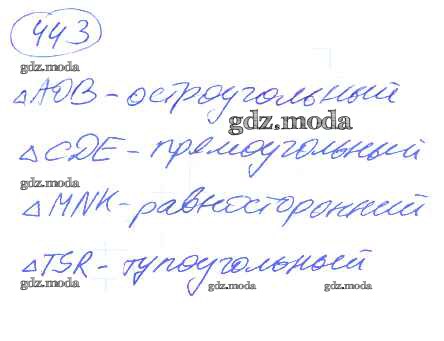 443
gdz.moda
△AOB - остроугольный
gdz.moda
△CDE - прямоугольный
gdz.moda
△MNK - равносторонний
△TSR - тупоугольный
gdz.moda gdz.moda gdz.moda